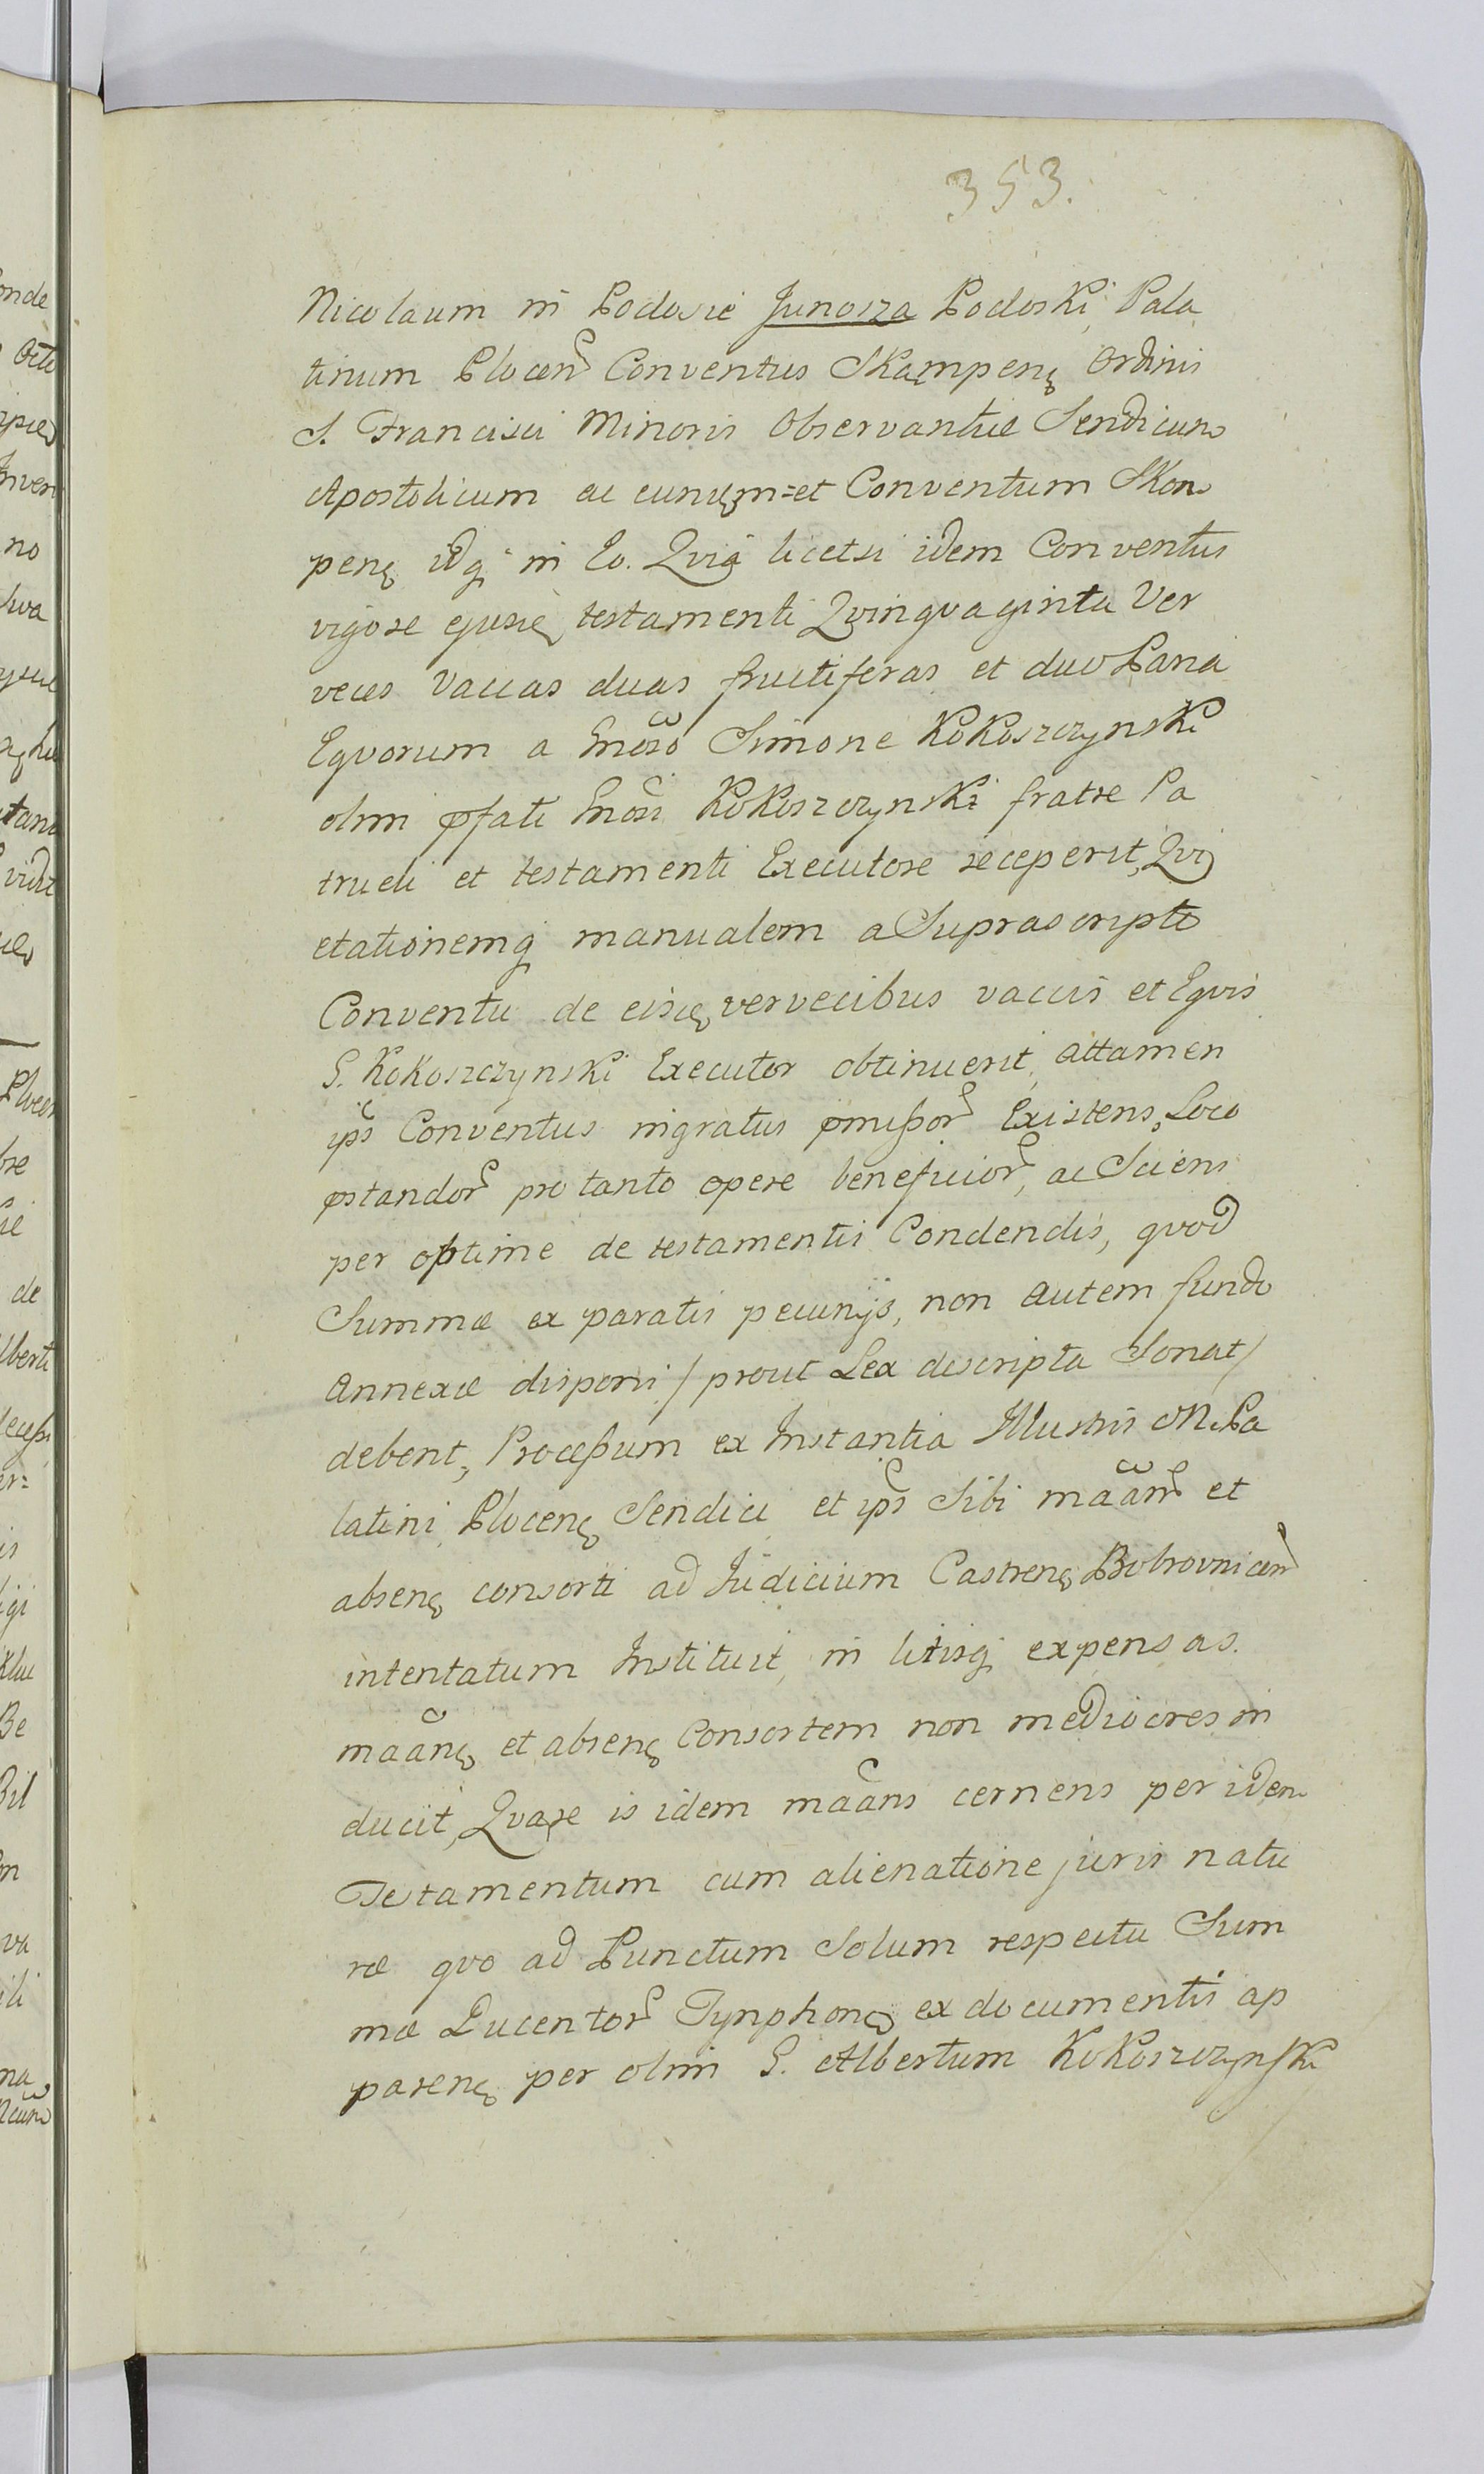 353.
Nicolaum in Podosie Junosza Podoski Pala
tinum Plocen Conventus Skąmpenę Ordinis
S. Francisci Minoris Observantiæ Sendicum
Apostolicum ac eundęm=et Conventum Skom
penę idq in Eo. Qvia licetsi idem Conventus
vigore ejusdę testamenti Qvinqvaginta Ver
veces Vaccas duas fructiferas et duo Paria
Eqvorum a Gnoso Simone Kokoszczynski
olim pfati Gnosi Kokoszczynski fratre Pa
trueli et testamenti Executore receperit, Qvi
etationemq manualem a Suprascripto
Conventu de eisdę vervecibus vaccis et Eqvis
G. Kokoszczynski Executor obtinuerit, attamen
ips Conventus ingratus pmißor Existens, Loco
pstandor pro tanto opere beneficior, ac Sciens
per optime de testamentis Condendis, qvod
Summæ ex paratis pecunijs, non autem fundo
Annexæ disponi / prout Lex descripta Sonat /
debent, Proceßum ex Instantia Illustris M. Pa
latini Plocenę Sendici et ips Sibi maan et
absenę consorti ad Judicium Castrenę Bobrovnicen
intentatum Instituit, in litisq expensas.
maanę et absenę Consortem non mediocres in
ducit, Qvare is idem maans cernens per idem
Testamentum cum alienatione juris natu
ræ qvo ad Punctum Solum respectu Sum
mæ Ducentor Tynphonę ex documentis ap
parenę per olim G. Albertum Kokoszczynski